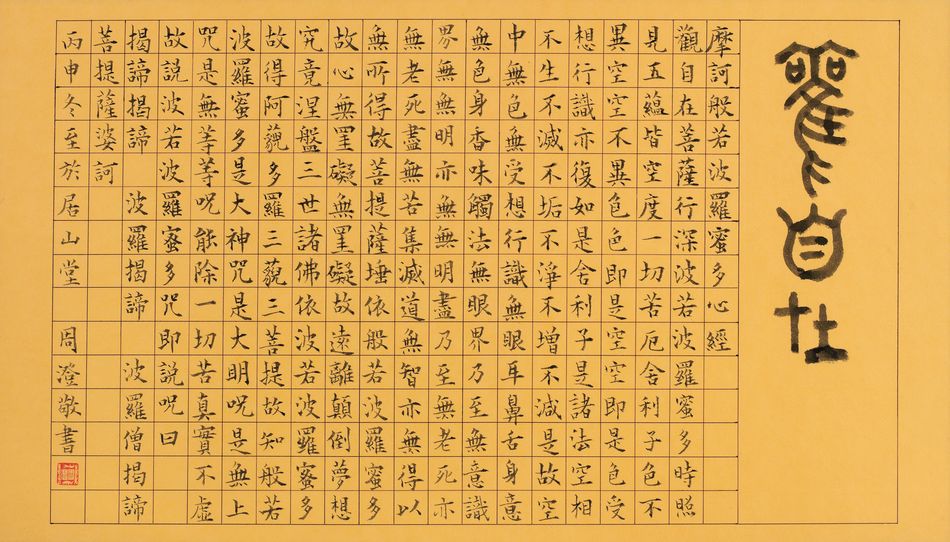 觀自在
摩訶般若波羅蜜多心經
觀自在菩薩行深波若波羅蜜多時照
見五蘊皆空度一切苦厄舍利子色不
異空空不異色色即是空空即是色受
想行識亦復如是舍利子是諸法空相
不生不滅不垢不淨不增不減是故空
中無色無受想行識無眼耳鼻舌身意
無色身香味觸法無眼界乃至無意識
界無無明亦無無明盡乃至無老死亦
無老死盡無苦集滅道無智亦無得以
無所得故菩提薩埵依般若波羅蜜多
故心無罣礙無罣礙故遠離顛倒夢想
究竟涅盤三世諸佛依波若波羅蜜多
故得阿藐多羅三藐三菩提故知般若
波羅蜜多是大神咒是大明咒是無上
咒是無等等咒能除一切苦真實不虛
故說波若波羅蜜多咒即說咒曰
揭諦揭諦 波羅揭諦 波羅僧揭諦
菩提薩婆訶
丙申冬至於居山堂 周澄敬書